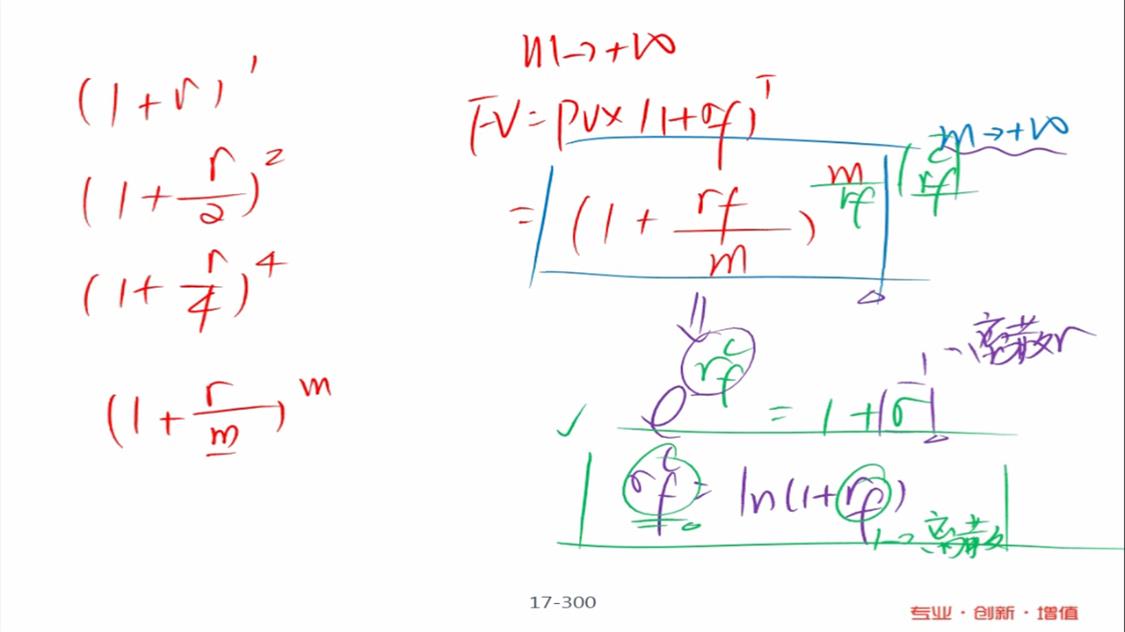 (1+r)^1
(1+r/2)^2
(1+r/4)^4
(1+r/m)^m
m→+∞
FV=PV×(1+rf)^T
m→+∞
=|(1+rf/m)^(m/rf)|^(rf^c)
e^(rf^c) = 1+r → 离散r
rf^c = ln(1+rf)
→离散
17-300
专业·创新·增值